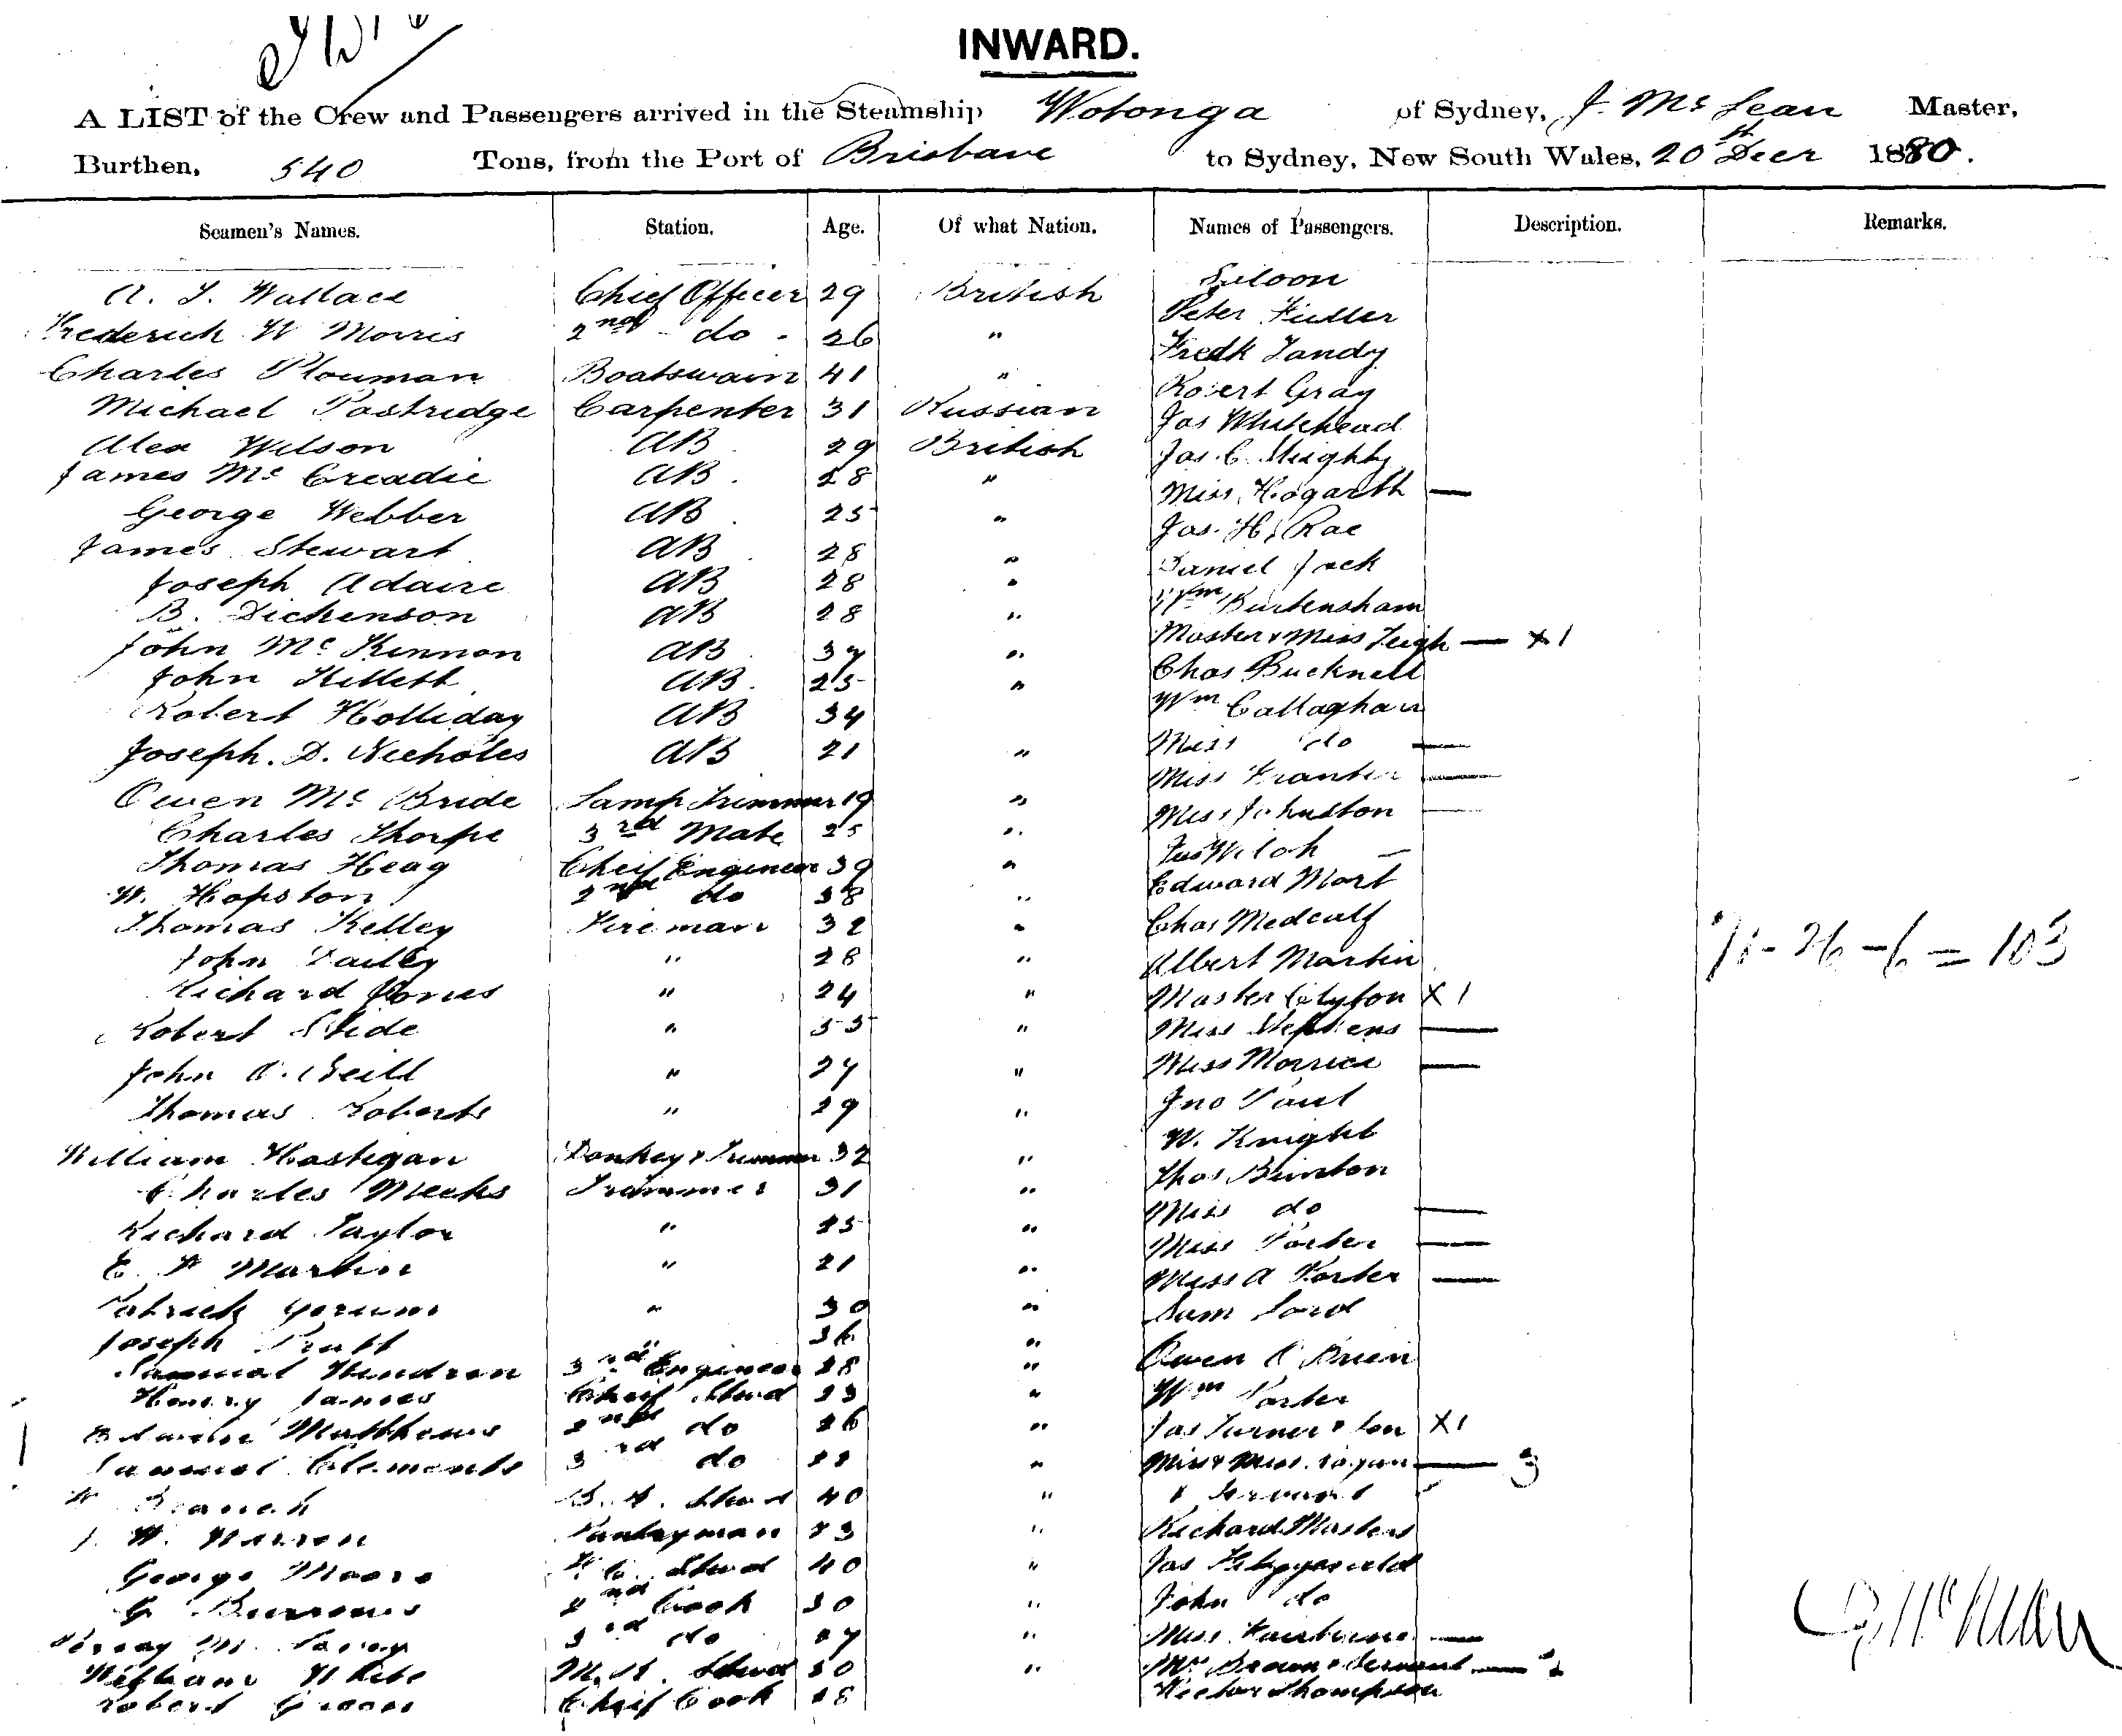 INWARD.
A LIST of the Crew and Passengers arrived in the Steamship Wotonga of Sydney, J. McLean Master,
Burthen, 540 Tons, from the Port of Brisbane to Sydney, New South Wales, 20th Decr 1880.
Seamen's Names. Station. Age. Of what Nation. Names of Passengers. Description. Remarks.
Saloon
A. J. Wallace Chief Officer 29 British Peter Fuller
Frederick W Morris 2nd do 26 " Fredk Tandy
Charles Plouman Boatswain 41 " Robert Gray
Michael Postridge Carpenter 31 Russian Jas Whitehead
Alex Wilson AB 29 British Jas C.
James McCreadie AB 28 " Miss Hogarth —
George Webber AB 25 " Jas. H. Rae
James Stewart AB 28 " Daniel Jack
Joseph Adaire AB 28 " Wm Burkensham
B. Dickenson AB 28 " Master & Miss Leigh — x 1
John McKinnon AB 37 " Chas Bucknell
John Killett AB 25 " Wm Callaghan
Robert Holliday AB 34 Miss do —
Joseph. D. Nicholes AB 21 " Miss —
Owen McBride Lamp Trimmer 19 " Miss Johnston —
Charles Thorpe 3rd Mate 25 "
Thomas Heag Cheif Engineer 39 " Edward Mort
W. Hopston 2nd do 38 " Chas Medcalf
Thomas Kelley Fireman 32 " Albert Martin 71-26-6=103
John Dailey " 28 " Master Clyton X 1
Richard Jones " 24 " Miss Stephens —
Robert Slide " 35 " Miss Morrice —
John O. Neill " 27 " Jno Paul
Thomas Roberts " 29 " W. Knight
William Hastigan Donkey & Trimmer 32 " Thos Brinton
Charles Meeks Trimmer 31 " Miss do —
Richard Taylor " 25 " Miss Porter —
E. F Martin " 21 " Miss A Porter —
Patrick " 30 " Sam Lord
Joseph Pratt 36 " Owen O Brien
Samuel Hendren 3rd Engineer 28 " Wm Porter
Henry James Cheif Stwd 23 " Jas Turner & Son X 1
Matthews 2nd do 26 " — 3
Samuel Clements 3rd do " & Servant
Stwd 40 " Richard Masters
W. Pantryman 23 " Jas
George Moore Stwd 40 " John do
G Burrows 2nd Cook 30 " Miss —
3rd do 27 " Mrs Brown & Servant — 2
William White Stwd 30 " Hector Thompson
Robert Green Cheif Cook 28
J McLean